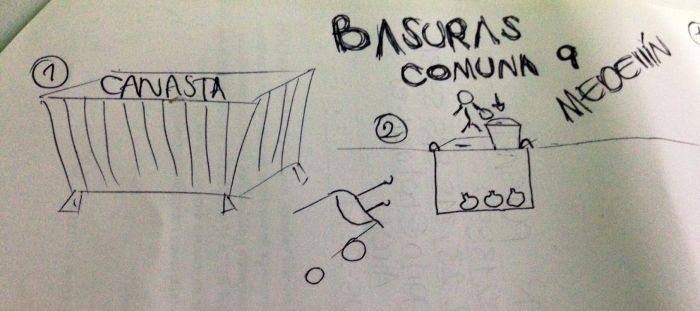 BASURAS
COMUNA 9
MEDELLÍN
1
CANASTA
2